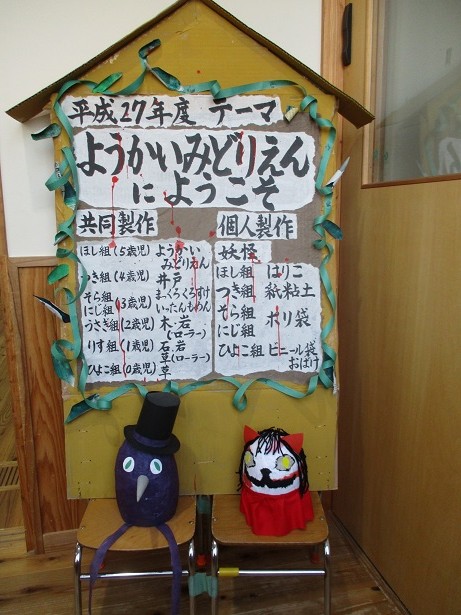 平成27年度 テーマ
ようかいみどりえん
にようこそ
共同製作
ほし組(5歳児) ようかい
みどりえん
つき組(4歳児) 井戸
そら組
にじ組 (3歳児) まっくろくろすけ
いったんもめん
うさぎ組(2歳児) 木・岩
(ローラー)
りす組(1歳児) 石岩
草(ローラー)
ひよこ組(0歳児) 草
個人製作
妖怪
ほし組 はりこ
つき組 紙粘土
そら組
にじ組 ポリ袋
ひよこ組 ビニール袋
おばけ